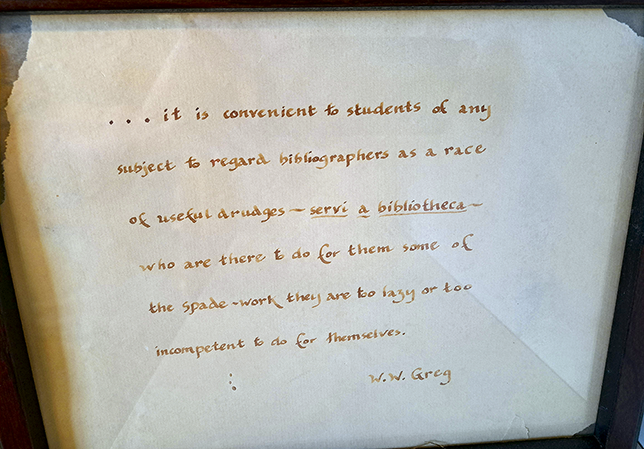 . . . it is convenient to students of any
subject to regard bibliographers as a race
of useful drudges — servi a bibliotheca —
who are there to do for them some of
the spade-work they are too lazy or too
incompetent to do for themselves.
W.W. Greg